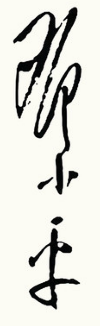 邓小平